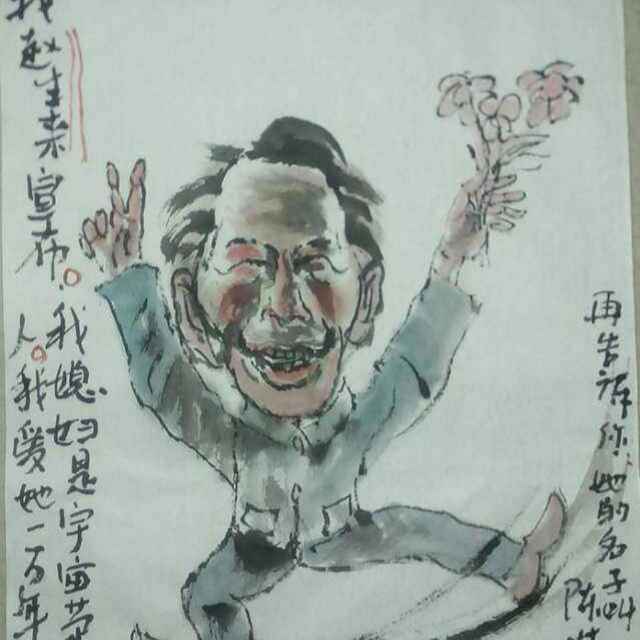 我赵生来宣布。我媳妇是宇宙
人。我爱她一万年
再告诉你.她的名字叫
陈